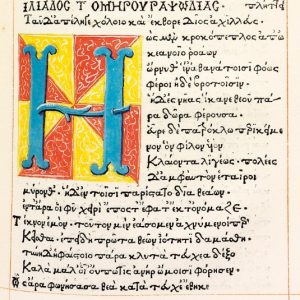 ΙΛΙΑΔΟΣ Τ ΟΜΗΡΟΥ ΡΑΨΩΔΙΑΣ·
Ταῦ δ' ἀπέληγε χόλοιο καὶ ἔκθορε δῖος ἀχιλλεύς·
Ἠὼς μὲν κροκόπεπλος ἀπ' ὠ
κεανοῖο ῥοάων
ὤρνυθ' ἵν' ἀθανάτοισι φόως
φέροι ἠδὲ βροτοῖσιν·
ἡ δ' ἐς νῆας ἵκανε θεοῦ πά
ρα δῶρα φέρουσα·
εὗρε δὲ πατρόκλῳ περικείμε
νον ὃν φίλον υἱὸν
Κλαίοντα λιγέως· πολέες
δ' ἀμφ' αὐτὸν ἑταῖροι
μύρονθ'· ἡ δ' ἐν τοῖσι παρίστατο δῖα θεάων
ἔν τ' ἄρα οἱ φῦ χειρὶ ἔπος τ' ἔφατ' ἔκ τ' ὀνόμαζε·
Τέκνον ἐμὸν· τοῦτον μὲν ἐάσομεν ἀχνύμενοί περ
Κεῖσθαι· ἐπειδὴ πρῶτα θεῶν ἰότητι δαμάσθη·
τύνη δ' ἡφαίστοιο πάρα κλυτὰ τεύχεα δέξο
Καλὰ μάλ' οἷ' οὔπω τις ἀνὴρ ὤμοισι φόρησεν·
Ὣς ἄρα φωνήσασα θεὰ κατὰ τεύχε' ἔθηκε